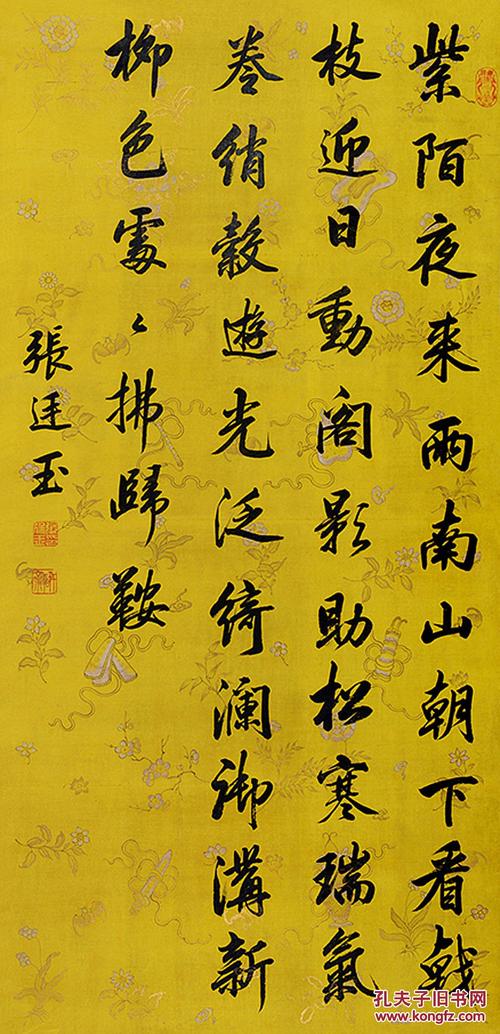 紫陌夜来雨南山朝下看戟
枝迎日動閣影助松寒瑞氣
卷綃縠遊光泛綺瀾御溝新
柳色處〻拂歸鞍
張廷玉
孔夫子旧书网
www.kongfz.com